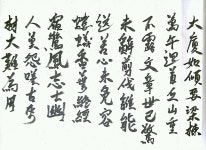 大廈如傾要梁棟
萬牛迴首丘山重
不露文章世已驚
未辭剪伐誰能
送苦心未免容
螻蟻香葉終經
宿鸞鳳志士幽
人莫怨嗟古來
材大難為用